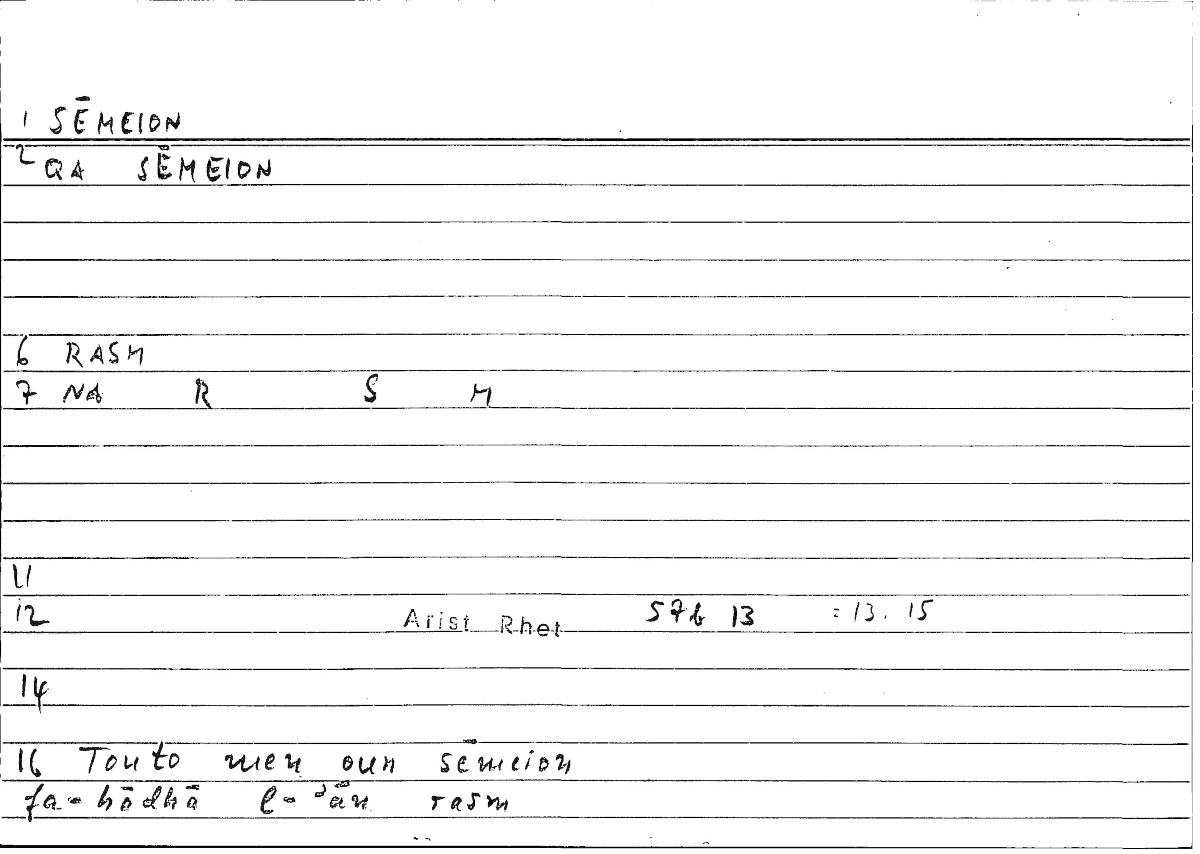 1 SĒMEION
2 QA SĒMEION
6 RASM
7 NA R S M
11
12 Arist Rhet 57b 13 =13. 15
14
16 Touto men oun sēmeion
fa-hādhā l-ʾān rasm